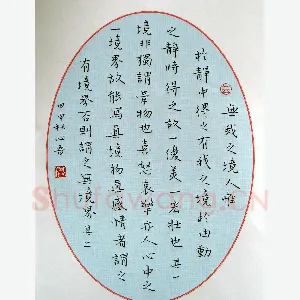 無我之境人惟
於靜中得之有我之境於由動
之靜時得之故一優美一宏壯也其一
境非獨謂景物也喜怒哀樂亦人心中之
一境界故能寫真境物真感情者謂之
有境界否則謂之無境界其二
Shufawang.CN